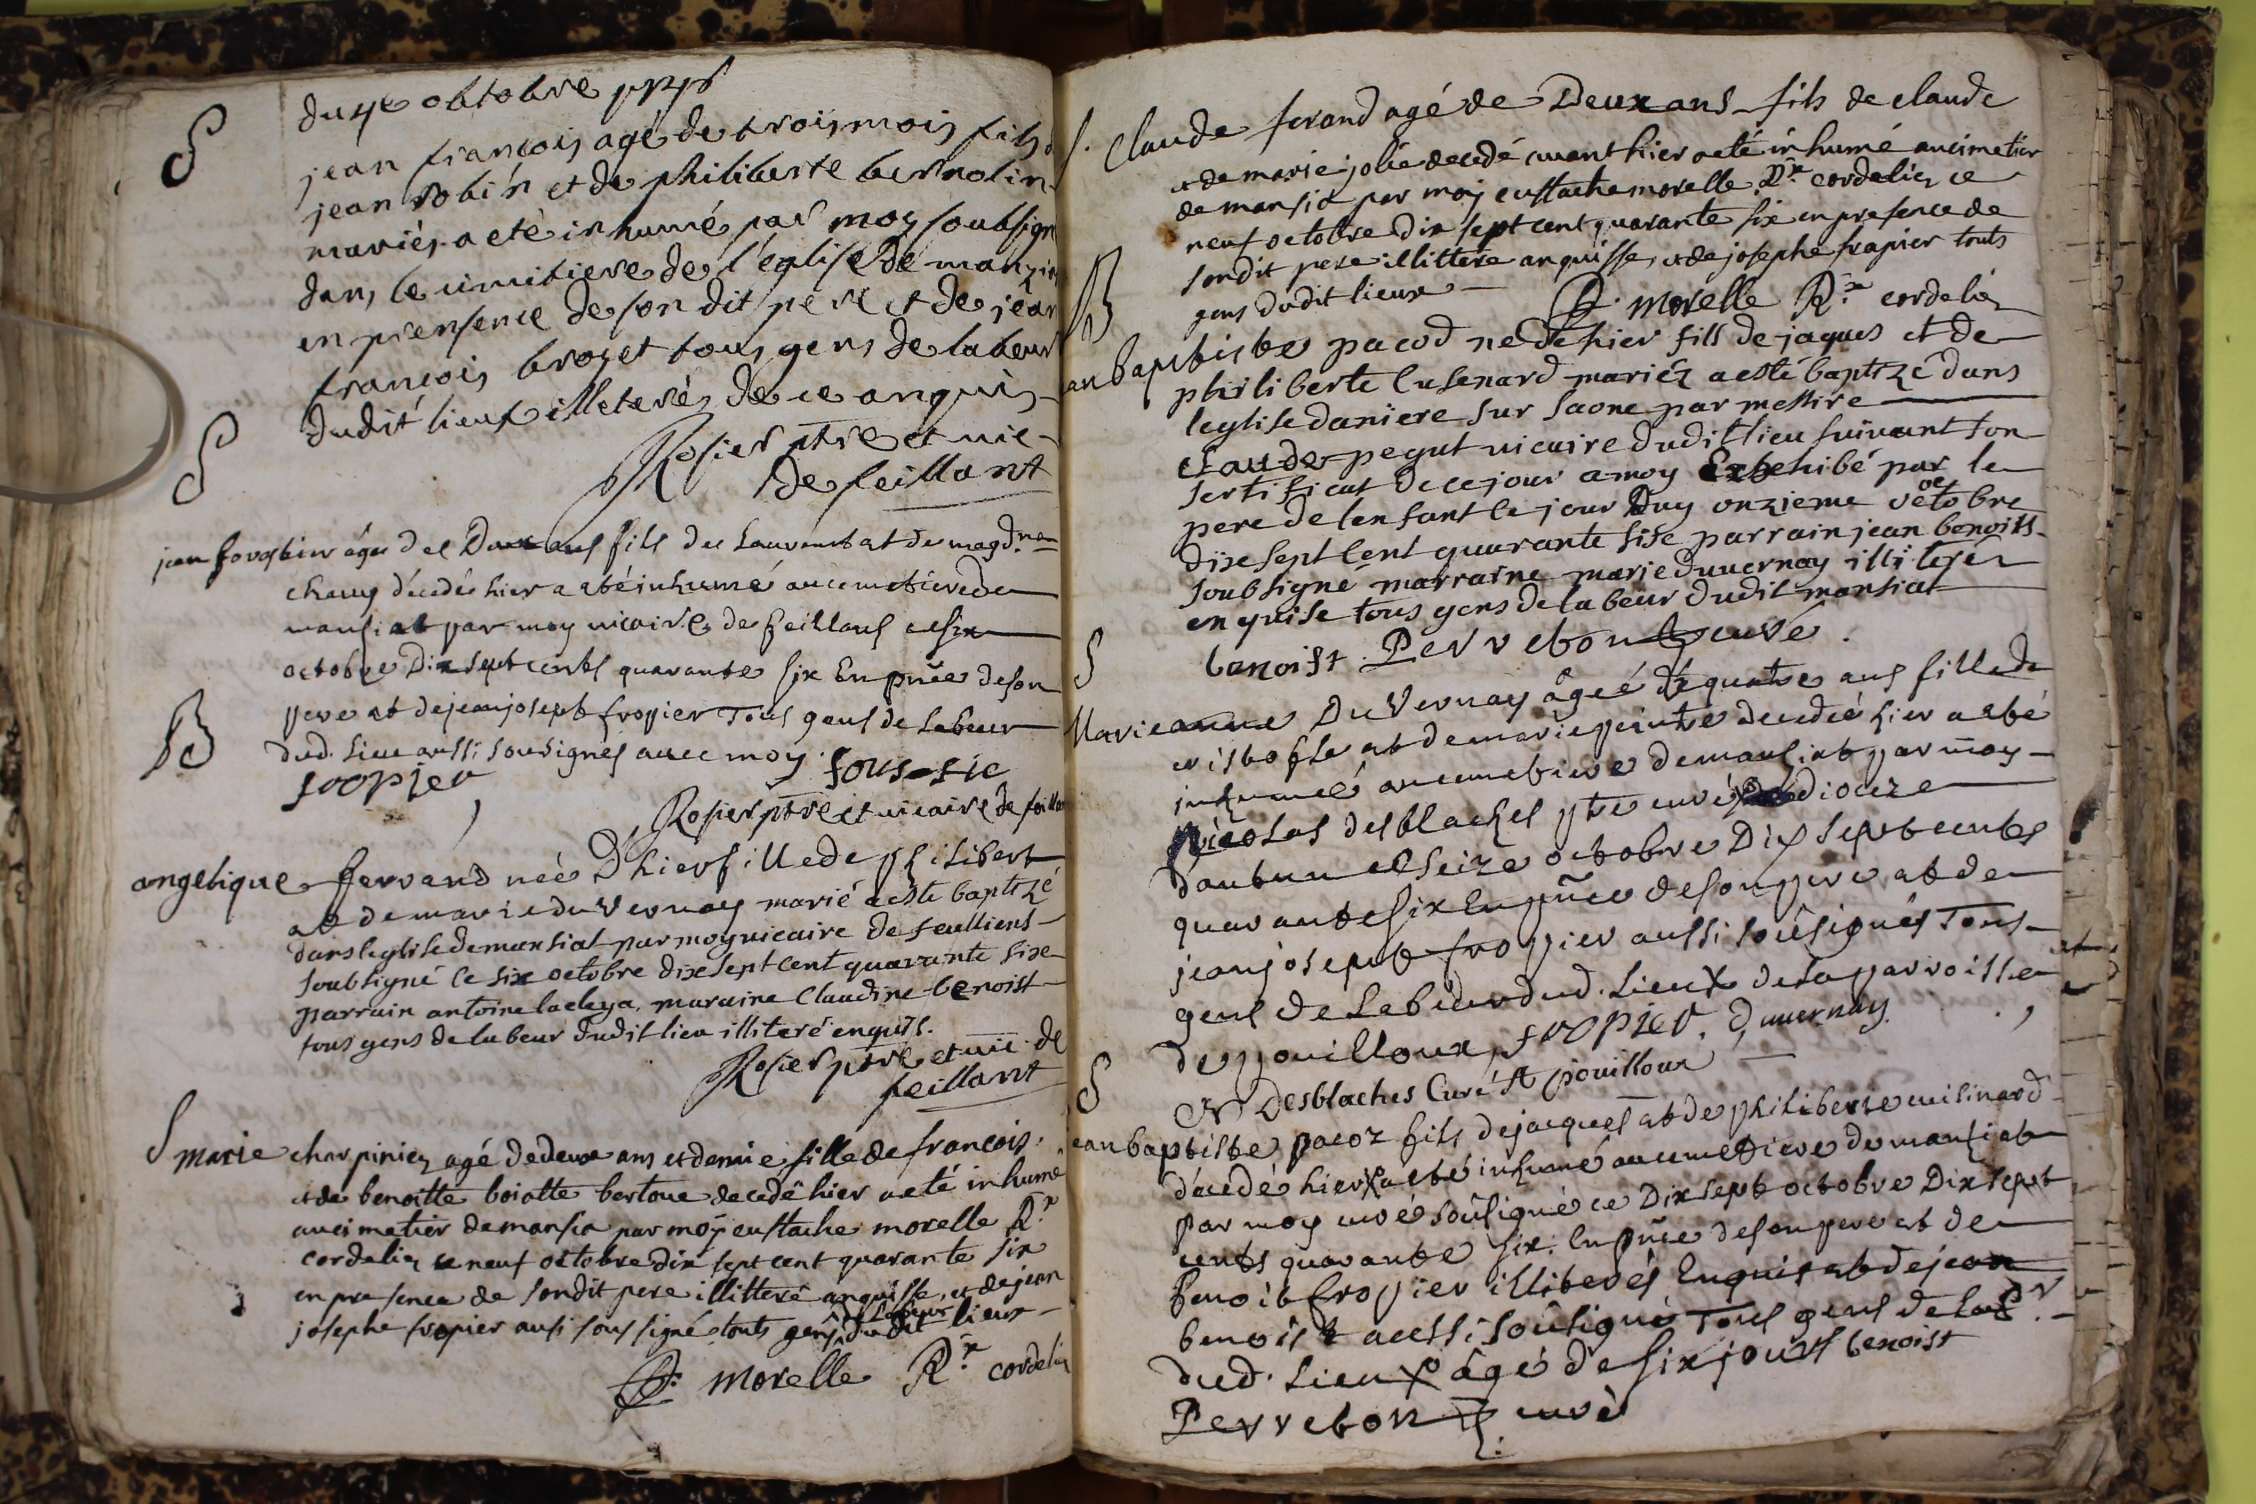 S
du 4e octobre 1746
jean francois agé de trois mois fils d
jean robin et de philiberte bernolin
mariés a eté inhumé par moy soubsigné
dans le cimitiere de l'église de manzia
en prensence de son dit pere et de jean
francois broyet tous gens de labeur
dudit lieux illeterés de ce anquis
Rosier ptre et vic
de feillant
S
jean fovostier agée de Deux ans fils de Laurent et de magdne
chany décédée hier a eté inhumé au cemetiere de
mansiat par moy vicaire de feillans ce six
octobre Dix sept cents quarante six En pñce de son
pere et de jean joseph fropier Tous gens de Labeur
dud. Lieu aussi sousignés avec moy.
fropier
Rosier ptre et vicaire de feillan
B
angelique ferrand née D'hier fille de philibert
et de marie duvernay marié a esté baptizé
dans leglise de mansiat par moy vicaire de feulliens
soubsigné ce six octobre dix sept cent quarante sixe
parrain antoine laclaya, maraine Claudine benoist
tous gens de labeur dudit lieu illiteré enquis.
Rosier ptre et vic de
feillant
S
marie charpiniez agé de deux ans et demie fille de francois
et de benoitte boiatte bertoue decedé hier a eté inhumé
au cimetier de mansia par moÿ eustache morelle Rx
cordelier ce neuf octobre dix sept cent quarante six
en presence de sondit pere illitteré anquisse, et de jean
josephe fropier ausi soussigné touts gens de labeur du dit lieux
f. morelle Rx cordelier
S.
Claude ferand agé de Deux ans fils de claude
et de marie jolie decedé avant hier a eté inhumé au cimetier
de mansia par moÿ eustache morelle Rx cordelier ce
neuf octobre dix sept cent quarante six en presence de
sondit pere illittere anquisse, et de josephe frapier touts
gens dudit lieux
f. morelle Rx cordelier
B
jan baptiste pacod né de hier fils de jaques et de
philiberte cusenard mariéz a esté baptizé dans
leglise daniere sur saone par messire
Claude pegut vicaire dudit lieu suivant son
sertificat de ce jour a moy Exehibé par le
pere de lenfant le jour Duy onzieme octobre
dixe sept cent quarante sixe parrain jean benoits
soubsigné marraine marie duvernay illiterée
enquise tous gens de labeur dudit mansiat
benoist. Perrebon curé.
S
Marieanne DuVernay âgeé de quatre ans fille de
cristofle et de marie peintre decedée hier a eté
inhumeé au cemetiere de mansiat par moy
Nicolas desblaches ptre curé diocize
dautun ce seize octobre Dix sept cents
quarante six En pñce de son pere et de
jean joseph fropier aussi soûsignés Tous
gens de Labeur dud. Lieux de la parroisse
de pouilloux, fropier. duvernay
N Desblaches Curé St pouilloux
S
jean baptiste pacoz fils de jacques et de philiberte cusinard
décedé hier x a eté inhumé au cemetiere de mansiat
par moy curé soûsigné ce Dix sept octobre Dix sept
cents quarante six. En pñce de son pere et de
Benoit fropier illiterés Enquis et de jean
benoist aussi soûsigné Tous gens de Labr
dud. Lieu x âgé de six jours benoist
Perrebon curé